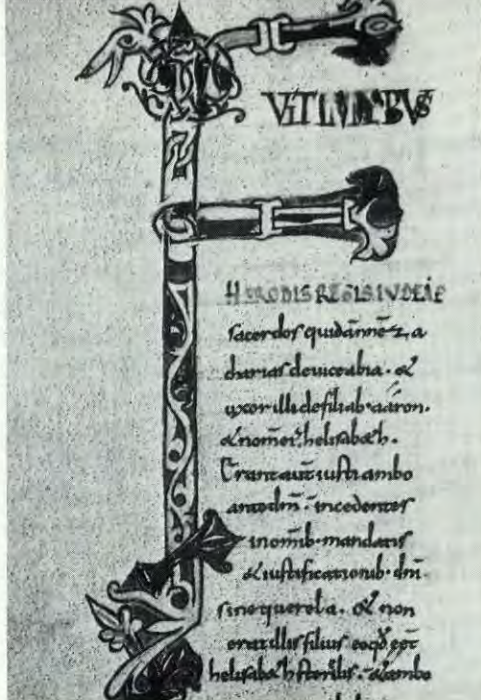 F
VIT IN DIEBVS
HERODIS REGIS IVDEAE
sacerdos quidā nomē z&a
charias de uice abia · &
uxor illi de filiab· aaron ·
& nom̄ ei' helisab&h ·
Erant aut̄ iusti ambo
ante dm̄ · incedentes
in om̄ib· mandatis
& iustificationib· dn̄i ·
sine querela · & non
erat illis filius eo qd̄ eēt
helisab&h sterilis · & ambo